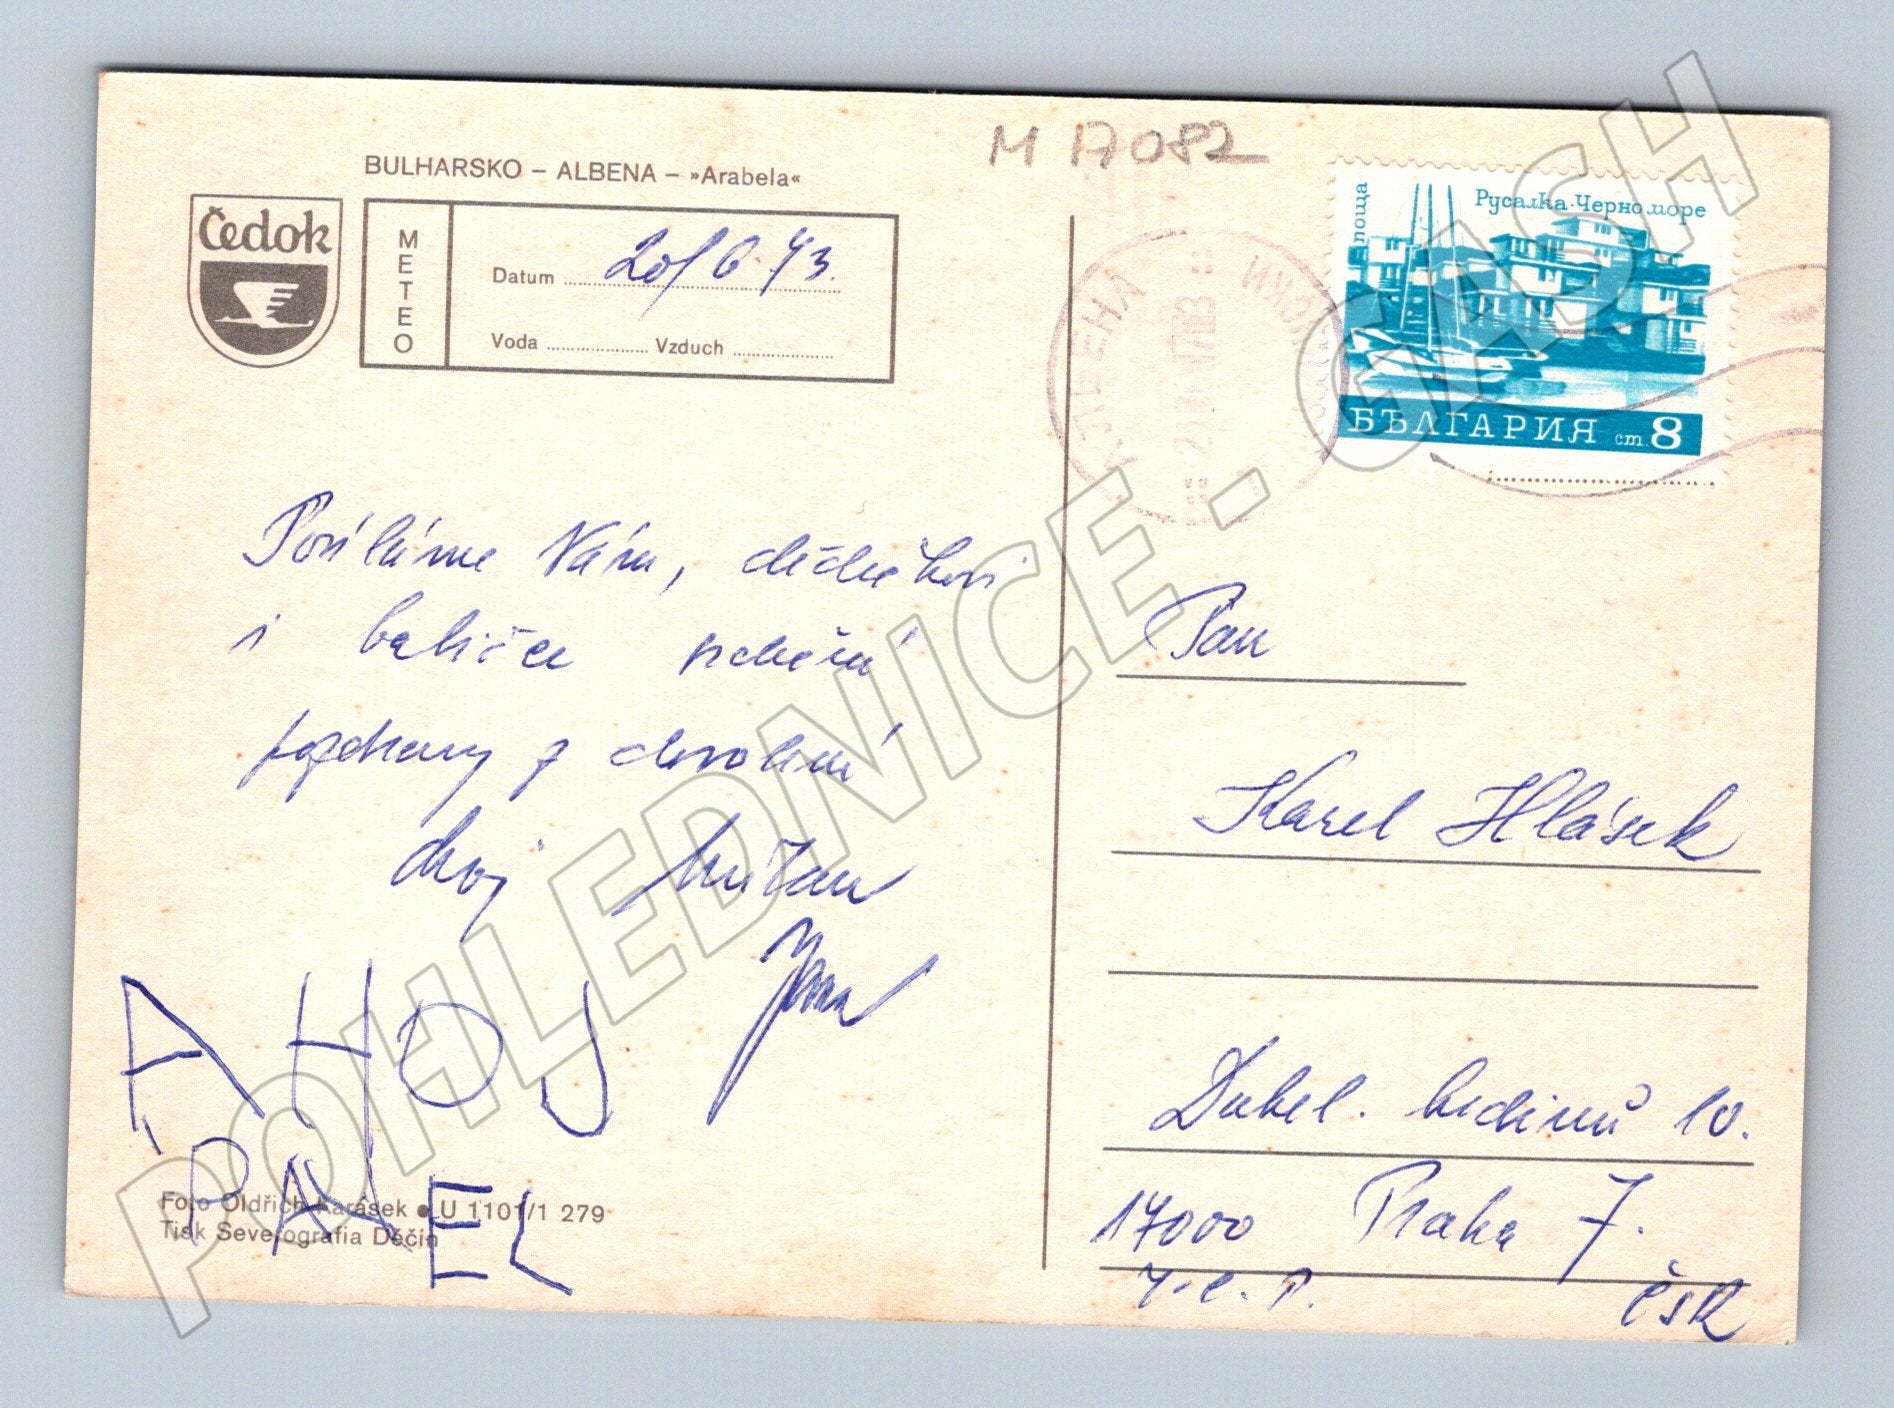 M 17082
BULHARSKO – ALBENA – »Arabela«
Čedok
METEO
Datum 20/6.73.
Voda ........ Vzduch ........
поща
Русалка·Черно море
БЪЛГАРИЯ ст. 8
АЛБЕНА
Posíláme Vám, dědečkovi
i babičce srdečné
pozdravy z dovolené
Milan
Jana
AHOJ
PAVEL
Foto Oldřich Karásek ● U 1101/1 279
Tisk Severografia Děčín
Pan
Karel Hlásek
Dukel. hrdinů 10.
17000 Praha 7.
ČSR
POHLEDNICE - GASH